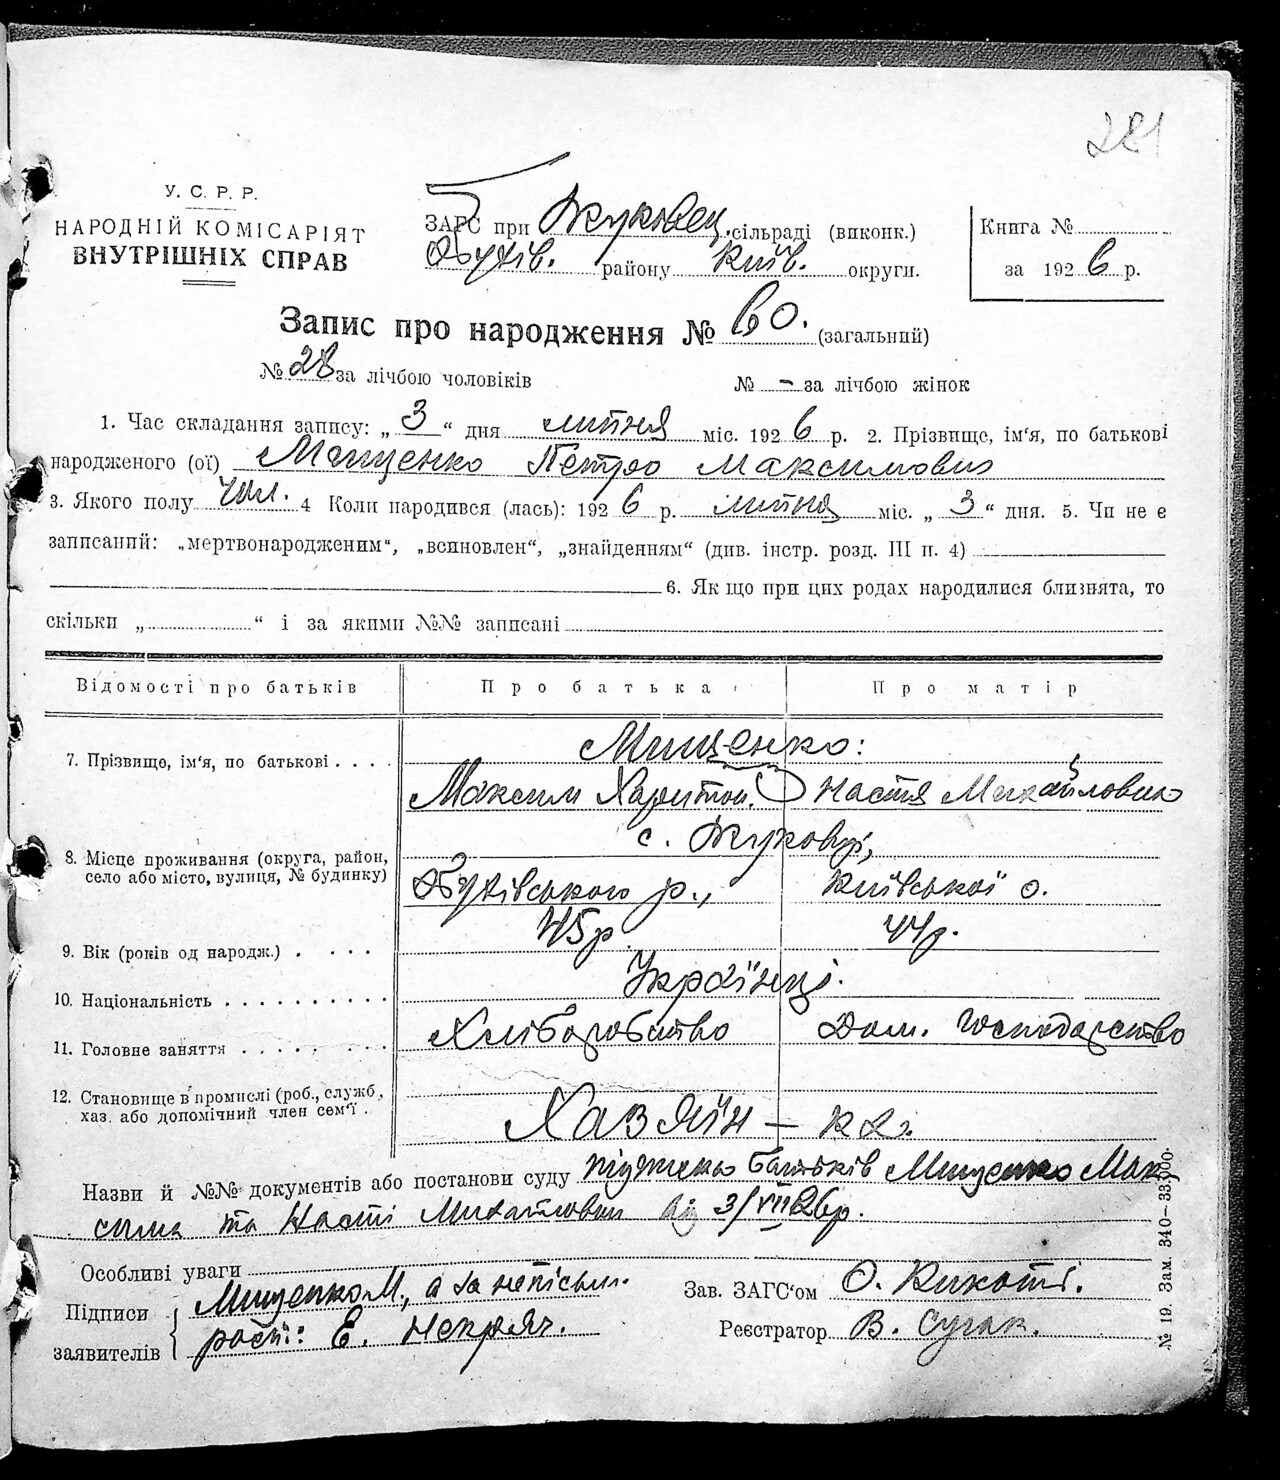 281
У. С. Р. Р.
НАРОДНІЙ КОМІСАРІЯТ
ВНУТРІШНІХ СПРАВ
ЗАГС при Жуковец. сільраді (виконк.)
Обухів. району Київ. округи.
Книга №
за 1926 р.
Запис про народження № 60. (загальний)
№ 28 за лічбою чоловіків № – за лічбою жінок
1. Час складання запису: „ 3 “ дня липня міс. 1926 р. 2. Прізвище, ім‘я, по батькові
народженого (ої) Мищенко Петро Максимович
3. Якого полу Чол. 4 Коли народився (лась): 1926 р. липня міс. „ 3 “ дня. 5. Чи не є
записаний: „мертвонародженим“, „всиновлен“, „знайденням“ (див. інстр. розд. III п. 4)
6. Як що при цих родах народилися близнята, то
скільки „ “ і за якими №№ записані
Відомості про батьків Про батька Про матір
Мищенко:
7. Прізвище, ім‘я, по батькові . . . . Максим Харитон. Настя Михайловна
с. Жуковці,
8. Місце проживання (округа, район,
село або місто, вулиця, № будинку) Обухівського р., Київської о.
9. Вік (років од народж.) . . . . 45р. 44р.
10. Національність . . . . . . . . . . Українці.
11. Головне заняття . . . . . . . . Хліборобство Дом. господарство
12. Становище в промислі (роб., служб,
хаз. або допомічний член сем‘ї . Хазяїн —
Назви й №№ документів або постанови суду батьків Мищенко Мак
сима та Насті Михайловни від 3/VII 26р.
Особливі уваги
Підписи заявителів Мищенко М., а за неписьм.
рост: Е. Непряч.
Зав. ЗАГС‘ом О.
Реєстратор В.
№ 19. Зам. 340–33.000.